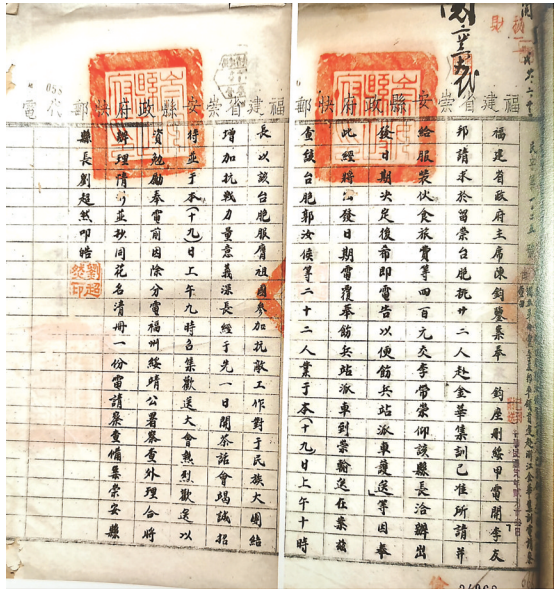 福建省崇安縣政府快郵
福建省政府主席陳鈞鑒集奉 鈞座刪綏甲電開李友
邦請求於留崇台胞挑廿二人赴金華集訓已准所請并
給服裝伙食旅費等四百元交李帶崇仰該縣長洽辦出
發日期決定復希即電告以便飭兵站派車護送等因奉
此經將出發日期電覆奉飭兵站派車到崇輸送在案茲
查該台胞郭汝侯等二十二人業于本(十九)日上午十時
福建省崇安縣政府快郵代電
長以該台胞服膺祖國參加抗敵工作對于民族大團結
增加抗戰力量意義深長經于先一日開茶話會竭誠招
待並于本(十九)日上午九時召集歡送大會熱烈歡送以
資勉勵奉電前因除分電福州綏靖公署察查外理合將
辦理情形並抄同花名清冊一份電請察查備案崇安縣
縣長劉超然叩皓
劉超然印